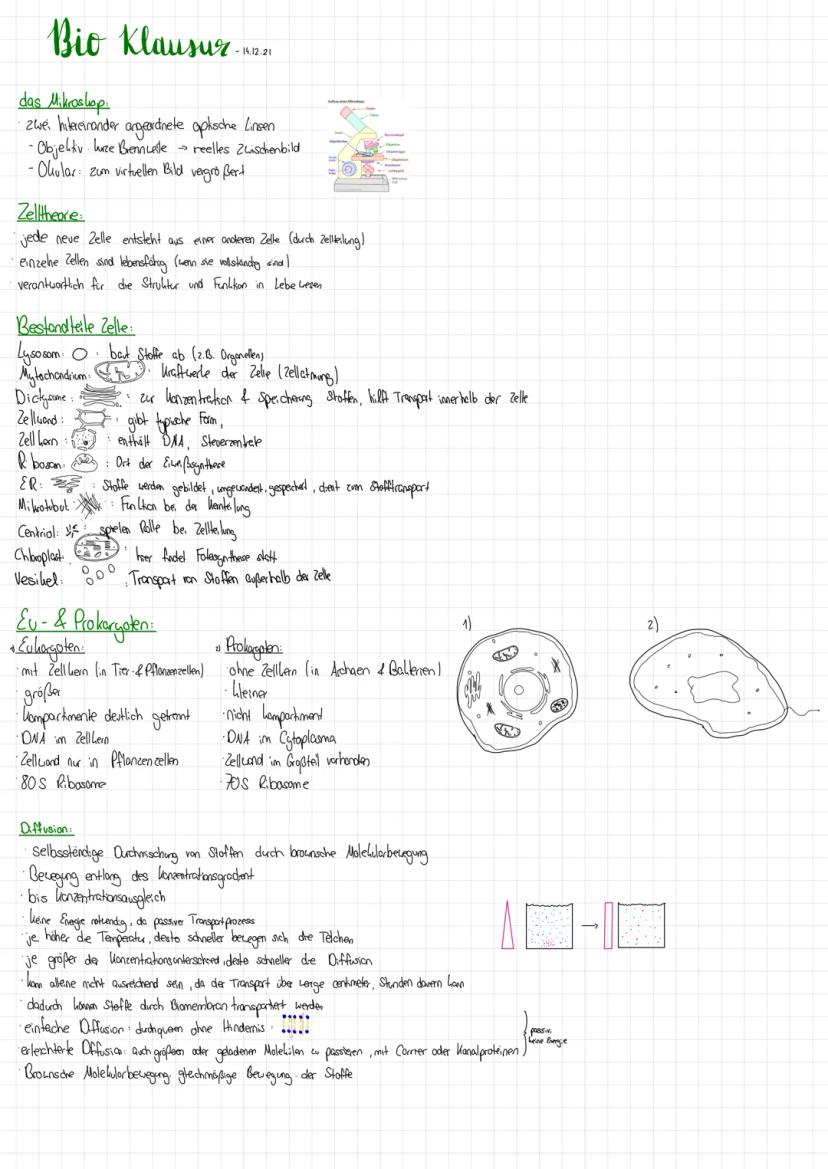 Bio Klausur - 14.12.21
das Mikroskop:
· zwei hitereinander angeordnete optische Linsen
- Objektiv: kurze Brennweite → reelles Zwischenbild
- Okular: zum virtuellen Bild vergrößert
Zelltheorie:
· jede neue Zelle entsteht aus einer anderen Zelle (durch Zellteilung)
· einzelne Zellen sind lebensfähig (wenn sie vollständig sind)
· verantwortlich für die Struktur und Funktion in Lebewesen
Bestandteile Zelle:
Lysosom: : baut Stoffe ab (z.B. Organellen)
Mytochondrium: : Kraftwerke der Zelle (Zellatmung)
Dictysome: : zur Konzentration & Speicherung Stoffen, hilft Transport innerhalb der Zelle
Zellwand: : gibt typische Form,
Zellkern: : enthält DNA, Steuerzentrale
Ribosom: : Ort der Eiweißsynthese
ER: : Stoffe werden gebildet, umgewandelt, gespeichert, dient zum Stofftransport
Mikrotubuli: : Funktion bei der Kernteilung
Centriol: : spielen Rolle bei Zellteilung
Chloroplast: : hier findet Fotosynthese statt
Vesikel: : Transport von Stoffen außerhalb der Zelle
Eu- & Prokaryoten:
1) Eukaryoten:
· mit Zellkern (in Tier- & Pflanzenzellen)
· größer
· Kompartimente deutlich getrennt
· DNA im Zellkern
· Zellwand nur in Pflanzenzellen
· 80S Ribosome
2) Prokaryoten:
· ohne Zellkern (in Archaen & Bakterien)
· kleiner
· nicht kompartiment
· DNA im Cytoplasma
· Zellwand im Großteil vorhanden
· 70S Ribosome
1)
2)
Diffusion:
· selbsständige Durchmischung von Stoffen durch brownsche Molekularbewegung
· Bewegung entlang des Konzentrationsgradient
· bis Konzentrationsausgleich
· keine Energie notwendig, da passiver Transportprozess
· je höher die Temperatur, desto schneller bewegen sich die Teilchen
· je größer der Konzentrationsunterschied, desto schneller die Diffusion
· kann alleine nicht ausreichend sein, da der Transport über wenige centimeter, Stunden dauern kann
· dadurch können Stoffe durch Biomembran transportiert werden
· einfache Diffusion: durchqueren ohne Hindernis
· erleichterte Diffusion: auch größeren oder geladenen Molekülen zu passieren, mit Carrier oder Kanalproteinen
passiv,
keine Energie
· Brownsche Molekularbewegung: gleichmäßige Bewegung der Stoffe